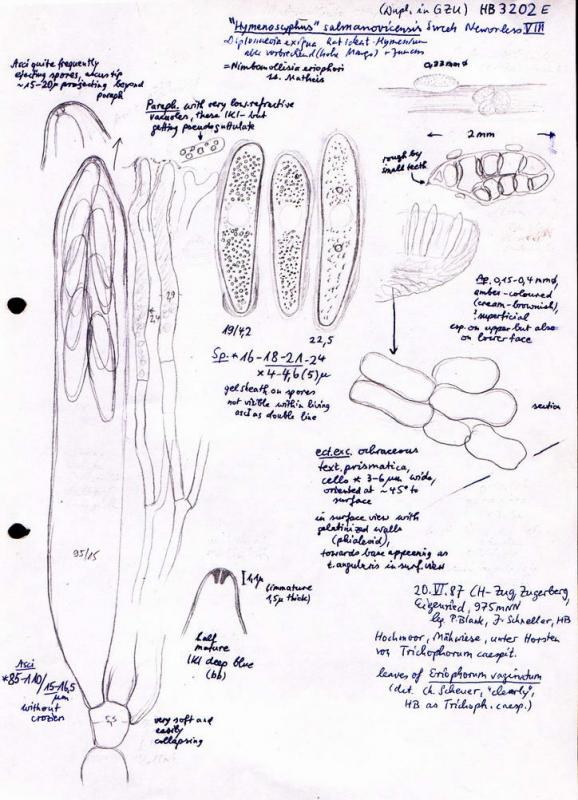 (Dupl. in GZU) HB 3202 E
"Hymenoscyphus" salmanovicensis Svrcek VIII
Diplonaevia exigua
= Nimbomollisia eriophori
ss. Matheis
0,33 mm ø
Asci quite frequently
ejecting spores, ascus tip
~15-20µ projecting beyond
paraph.
Paraph. with very low refractive
vacuoles, these IKI - but
getting pseudoguttulate
2 mm
rough by
small teeth
Ap. 0,15-0,4 mm ø,
amber-coloured
(cream-brownish),
superficial
esp. on upper but also
on lower face
2,4
2,9
19/4,2
22,5
Sp. * 16-18-21-24
× 4-4,6 (5) µ
gel sheath on spores
not visible within living
asci as double line
section
ect. exc. ochraceous
text. prismatica,
cells * 3-6 µm wide,
oriented at ~45° to
surface
in surface view with
gelatinized walls
(phialoid),
towards base appearing as
t. angularis in surf. view
95/15
4µ
(immature
1,5µ thick)
half
mature
IKI deep blue
(bb)
20.VI.87 (CH-Zug, Zugerberg,
Eigenried, 975 mNN
leg. P. Blank, J. Schneller, HB
Hochmoor, Mähwiese, unter Horsten
von Trichophorum caespit.
leaves of Eriophorum vaginatum
(det. Ch. Scheuer, "clearly",
HB as Trichoph. caesp.)
Asci
*85-110/15-16,5
µm
without
crozier
5,5
very soft and
easily
collapsing